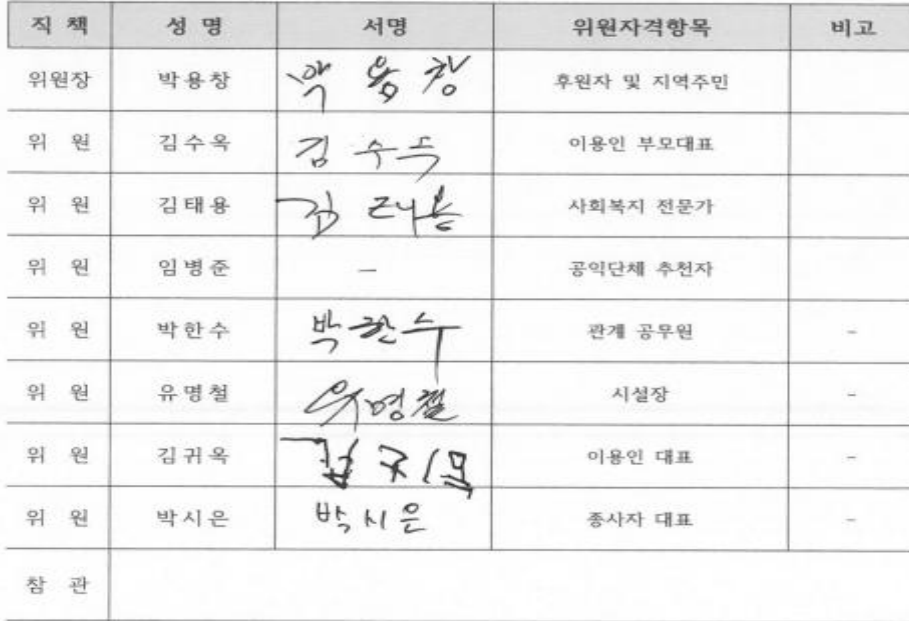 직 책 성 명 서명 위원자격항목 비고
위원장 박용창 박용창 후원자 및 지역주민
위 원 김수옥 김수옥 이용인 부모대표
위 원 김태용 김태용 사회복지 전문가
위 원 임병준 - 공익단체 추천자
위 원 박한수 박한수 관계 공무원 -
위 원 유명철 유명철 시설장 -
위 원 김귀옥 김귀옥 이용인 대표 -
위 원 박시은 박시은 종사자 대표 -
참 관